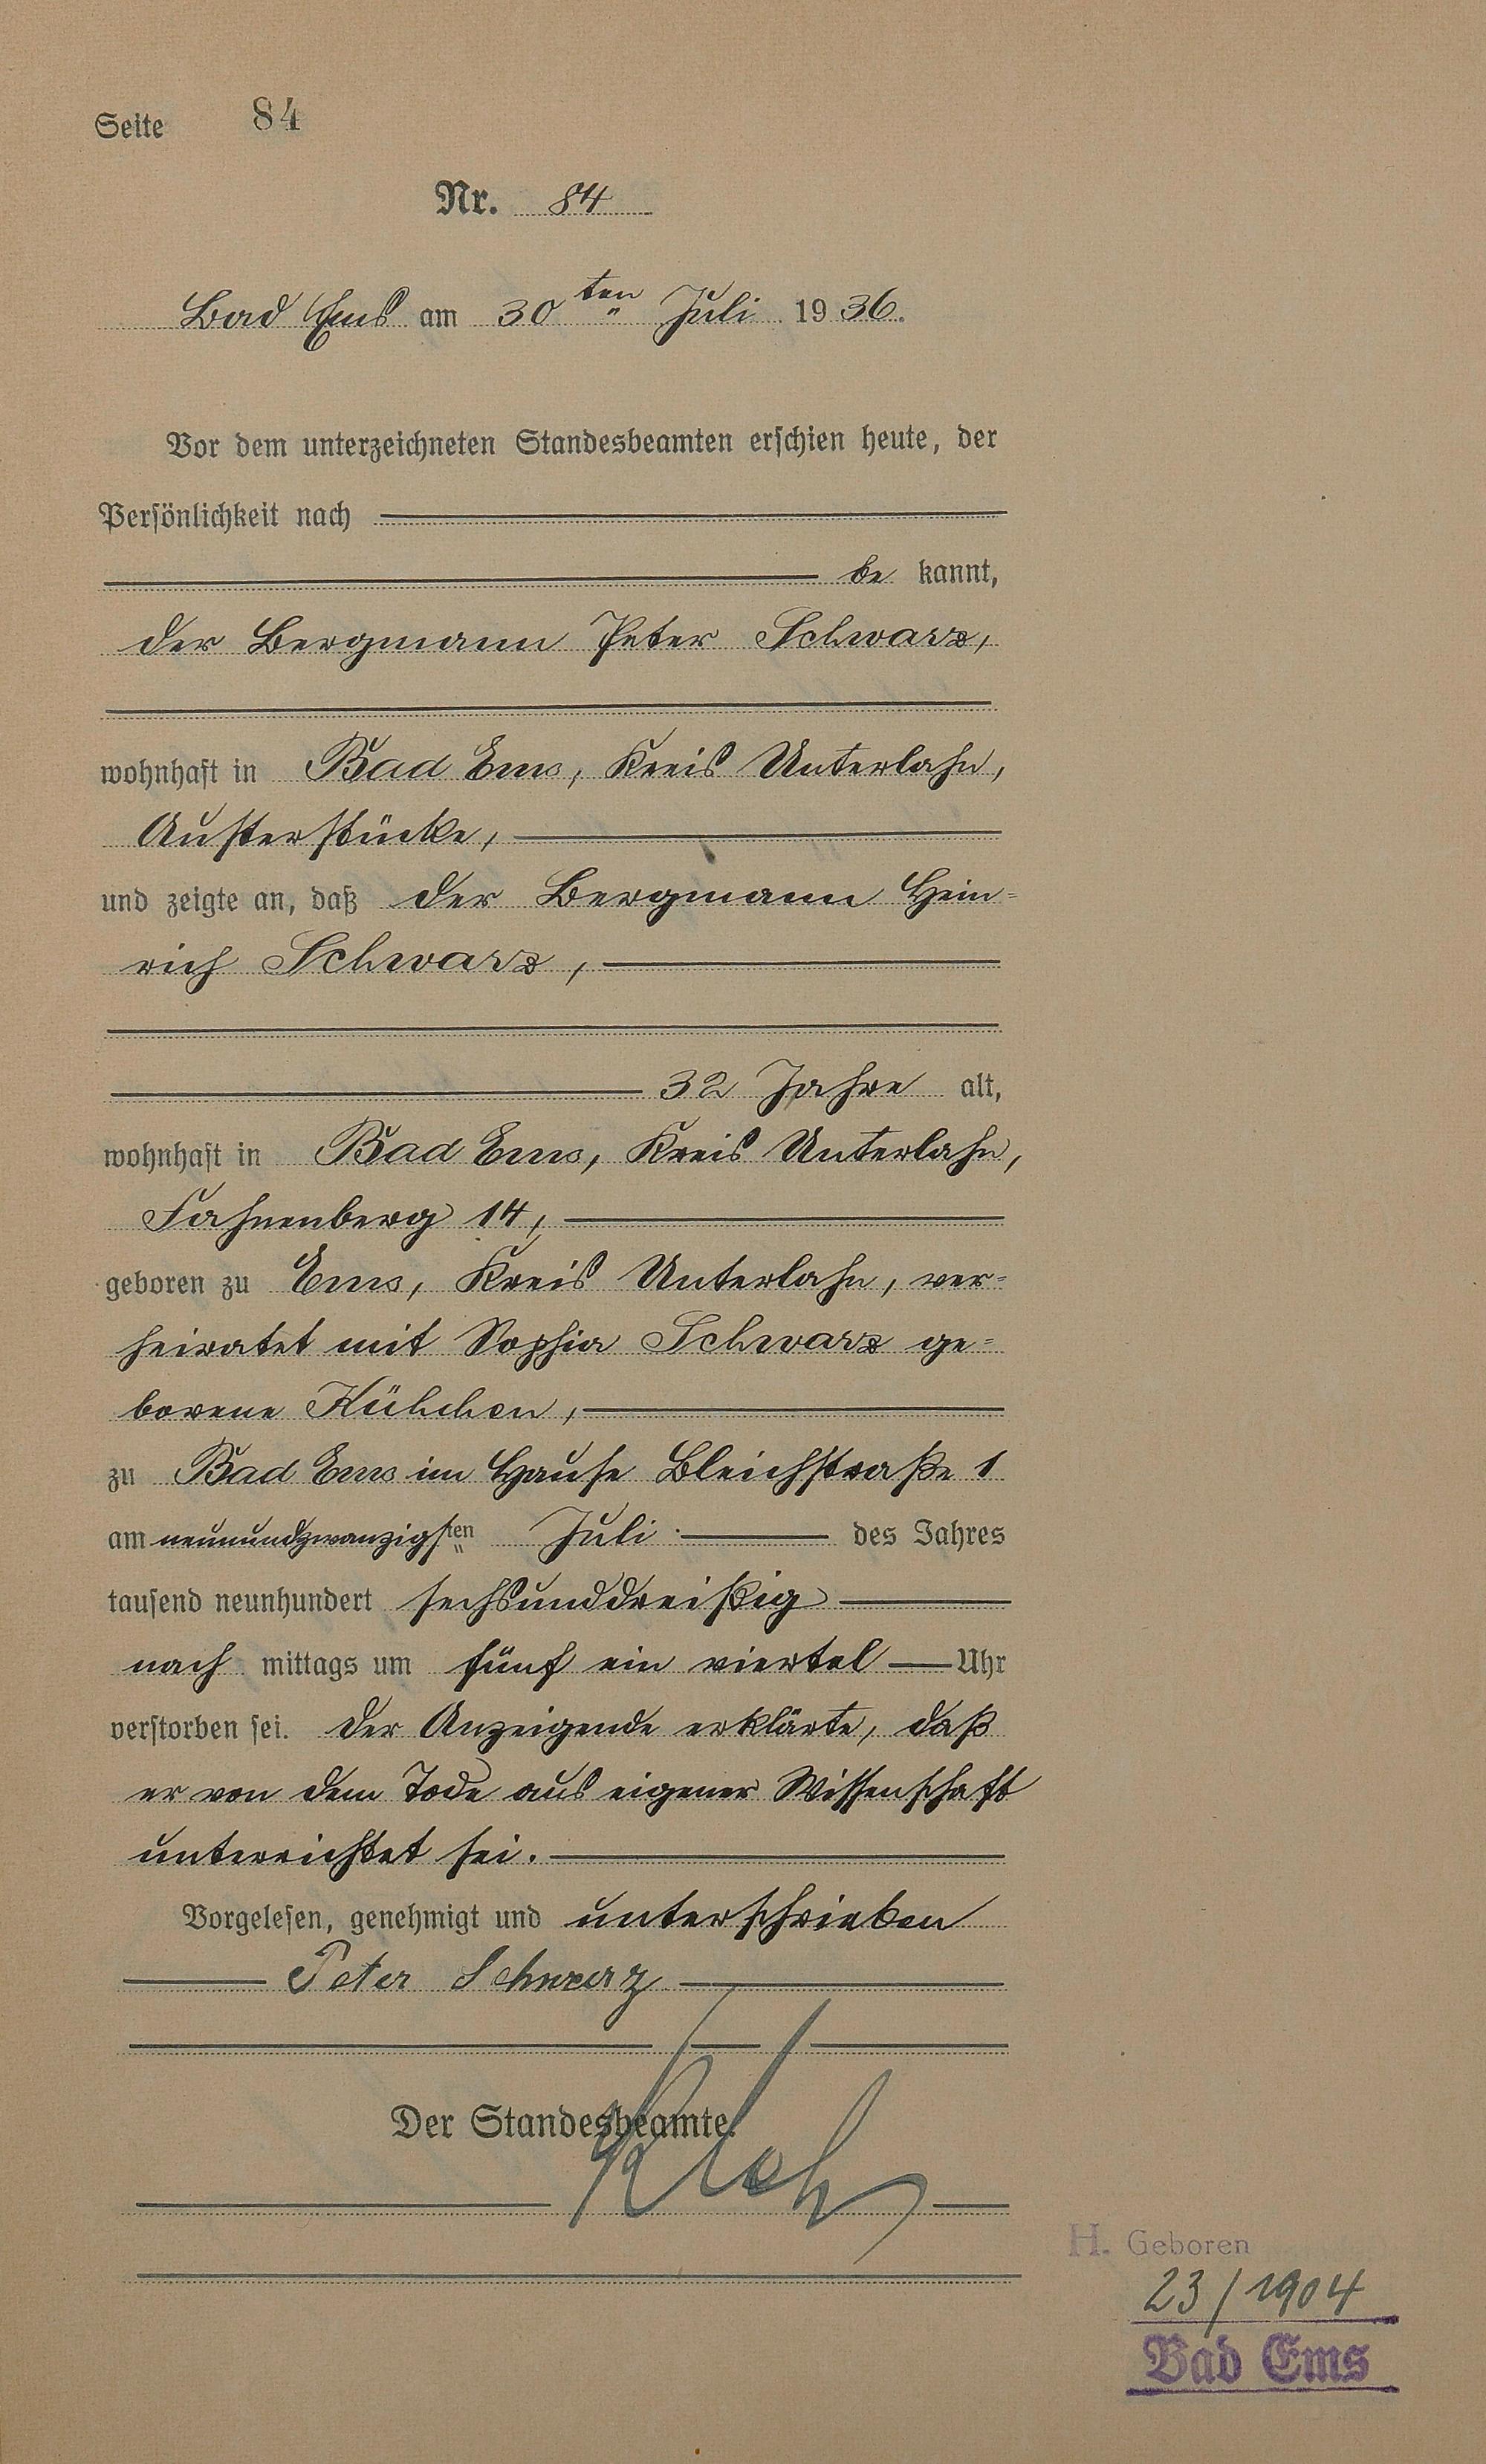 Seite 84
Nr. 84
Bad Ems am 30ten Juli 1936.
Vor dem unterzeichneten Standesbeamten erschien heute, der
Persönlichkeit nach
be kannt,
der Bergmann Peter Schwarz,
wohnhaft in Bad Ems, Kreis Unterlahn,
Austerstücke,
und zeigte an, daß der Bergmann Hein=
rich Schwarz,
32 Jahre alt,
wohnhaft in Bad Ems, Kreis Unterlahn,
Fahnenberg 14,
geboren zu Ems, Kreis Unterlahn, ver=
heiratet mit Sophia Schwarz ge=
borene Kühchen,
zu Bad Ems im Hause Bleichstraße 1
am neunundzwanzigsten Juli des Jahres
tausend neunhundert sechsunddreißig
nach mittags um fünf ein viertel Uhr
verstorben sei. Der Anzeigende erklärte, daß
er von dem Tode aus eigener Wissenschaft
unterrichtet sei.
Vorgelesen, genehmigt und unterschrieben
Peter Schwarz
Der Standesbeamte.
H. Geboren
23/1904
Bad Ems